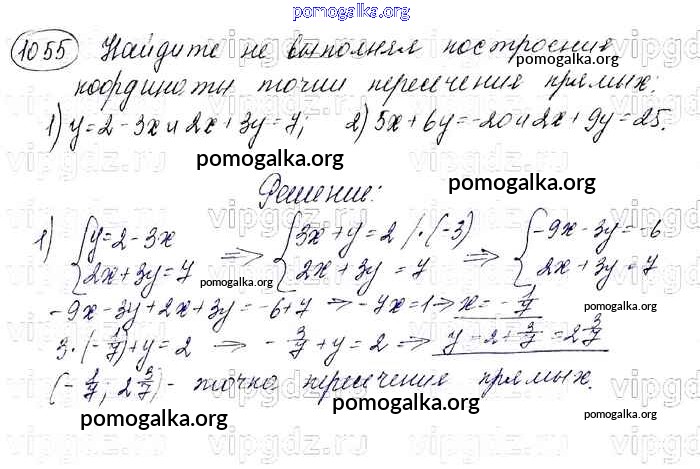 pomogalka.org
1055 Найдите не выполняя построения
координаты точки пересечения прямых:
1) y=2-3x и 2x+3y=7; 2) 5x+6y=-20 и 2x+9y=25.
pomogalka.org
pomogalka.org
Решение:
1) {y=2-3x {3x+y=2 |·(-3) {-9x-3y=-6
{2x+3y=7 => {2x+3y=7 => {2x+3y=7
pomogalka.org
-9x-3y+2x+3y=-6+7 => -7x=1 => x=-1/7
pomogalka.org
3·(-1/7)+y=2 => -3/7+y=2 => y=2+3/7=2 3/7
pomogalka.org
(-1/7; 2 3/7) - точка пересечения прямых.
pomogalka.org
pomogalka.org
pomogalka.org